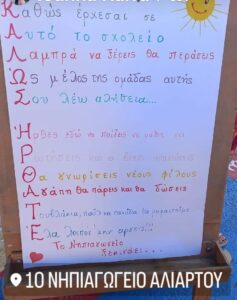 Καθώς έρχεσαι σε
Αυτό το σχολείο
Λαμπρά να ξέρεις θα περάσεις
Ως μέλος της ομάδας αυτής
Σου λέω αλήθεια...
Ήρθες εδώ να παίξεις να μάθεις να
Ρωτήσεις και ν
Θα γνωρίσεις νέους φίλους
Αγάπη θα πάρεις και θα δώσεις
Τουβλάκια,
Έλα λοιπόν
Το Νηπιαγωγείο
ξεκινάει...
1Ο ΝΗΠΙΑΓΩΓΕΙΟ ΑΛΙΑΡΤΟΥ